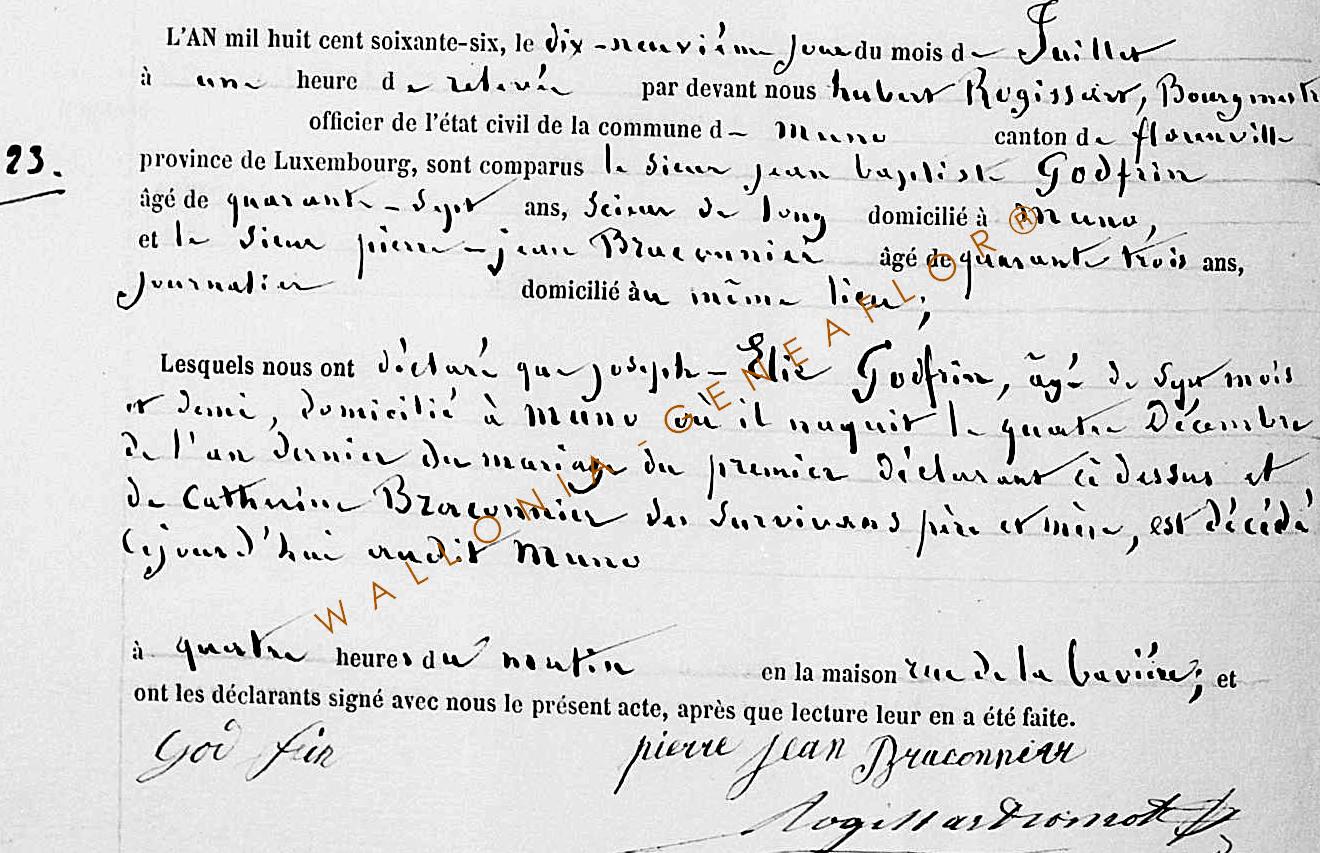 L'AN mil huit cent soixante-six, le dix-neuvième jour du mois de Juillet
à une heure de relevée par devant nous hubert Rogissart, Bourgmestre
officier de l'état civil de la commune de muno canton de florenville
23.
province de Luxembourg, sont comparus le sieur jean baptiste Godfrin
âgé de quarante-sept ans, scieur de long domicilié à muno,
et le sieur pierre-jean Braconnier âgé de quarante trois ans,
journalier domicilié au même lieu;
Lesquels nous ont déclaré que joseph-Elie Godfrin, âgé de sept mois
et demi, domicilié à muno où il naquit le quatre Décembre
de l'an dernier du mariage du premier déclarant ci dessus et
de Catherine Braconnier ses survivans père et mère, est décédé
cejourd'hui audit muno
à quatre heures du matin en la maison rue de la bavière; et
ont les déclarants signé avec nous le présent acte, après que lecture leur en a été faite.
God frin pierre jean Braconnier
WALLONIA-GENEAFLOR®